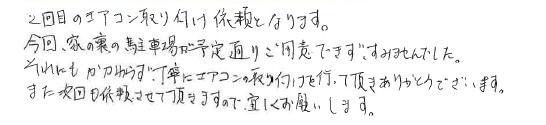 2回目のエアコン取り付け依頼となります。
今回、家の裏の駐車場が予定通りご用意できず、すみませんでした。
それにもかかわらず丁寧にエアコンの取り付けを行って頂きありがとうございます。
また次回も依頼させて頂きますので、宜しくお願いします。